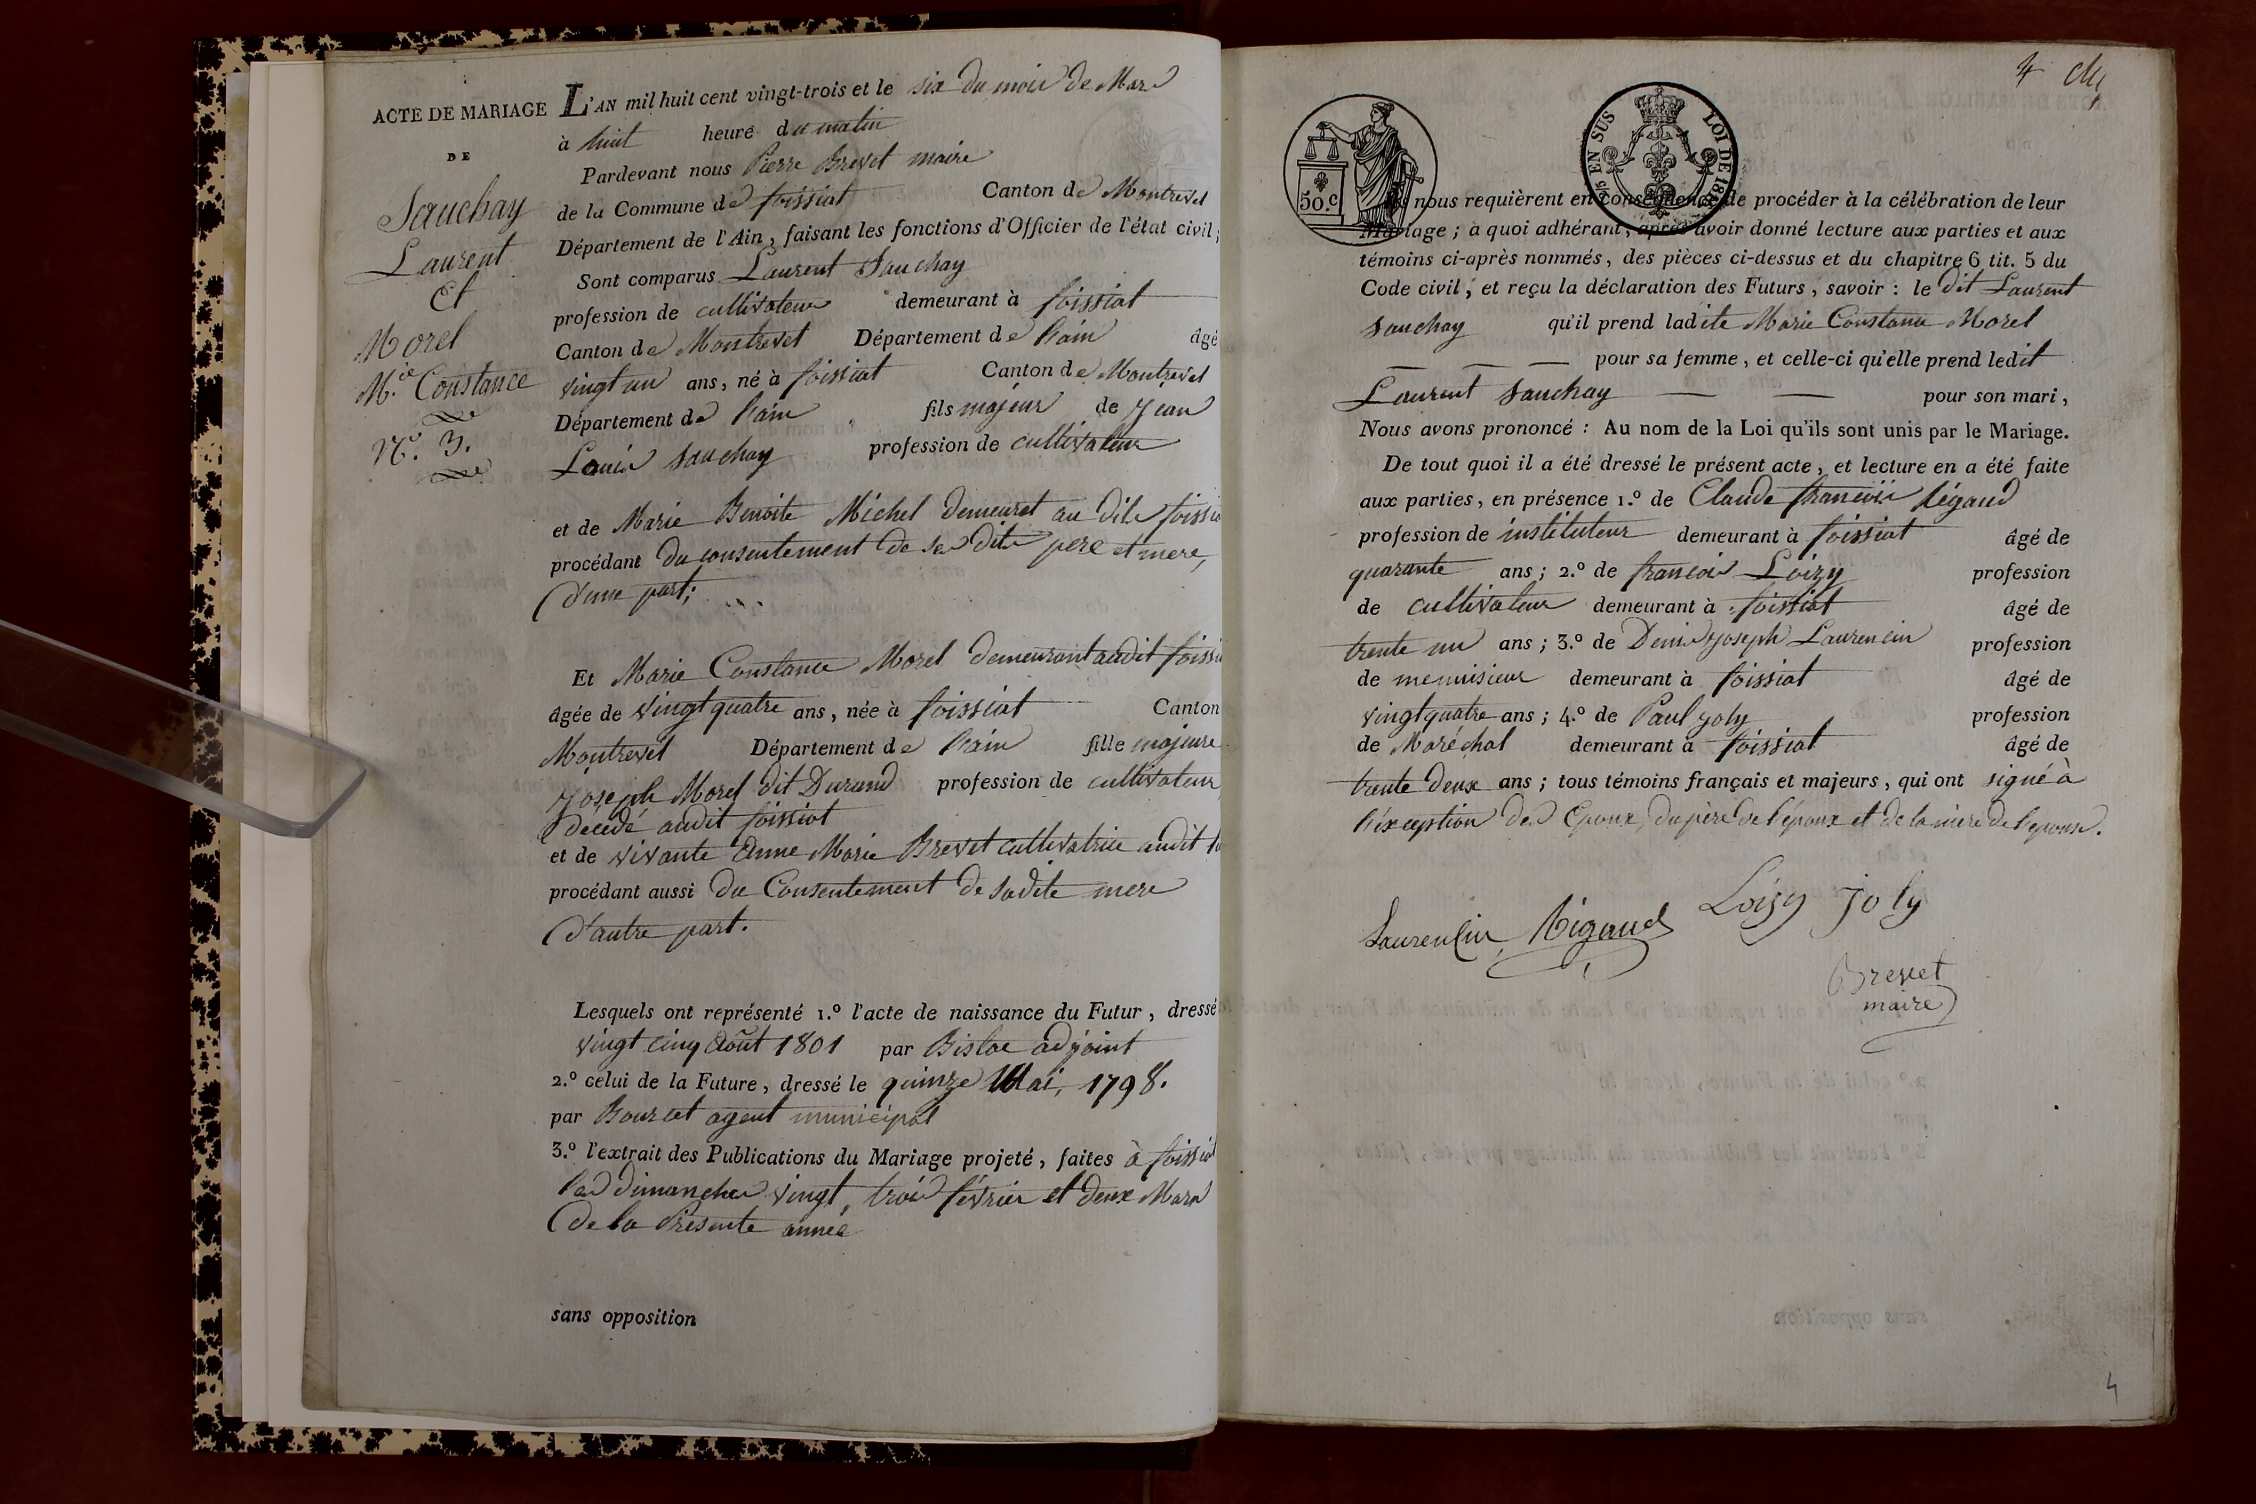 ACTE DE MARIAGE
DE
Sauchay
Laurent
Et
Morel
M.ie Constance
N.o 3.
L'AN mil huit cent vingt-trois et le six du mois de Mars
à huit heure du matin
Pardevant nous Pierre Brevet maire
de la Commune de foissiat Canton de Montrevel
Département de l'Ain, faisant les fonctions d'Officier de l'état civil;
Sont comparus Laurent Sauchay
profession de cultivateur demeurant à foissiat
Canton de Montrevel Département de l'ain âgé
vingt un ans, né à foissiat Canton de Montrevel
Département de l'ain fils majeur de Jean
Louis Sauchay profession de cultivateur
et de Marie Benoite Michel demeuret au dit foissia
procédant du consentement de se dits pere et mere,
d'une part;
Et Marie Constance Morel demeurant audit foissi
âgée de vingt quatre ans, née à foissiat Canton
Montrevel Département de l'ain fille majeure
Joseph Morel dit Durand profession de cultivateur
décédé audit foissiat
et de vivante Anne Marie Brevet cultivatrice audit fo
procédant aussi du Consentement de sadite mere
d'autre part.
Lesquels ont représenté 1.o l'acte de naissance du Futur, dressé
vingt cinq Août 1801 par Bislac adjoint
2.o celui de la Future, dressé le quinze Mai, 1798.
par Bourcet agent municipal
3.o l'extrait des Publications du Mariage projeté, faites à foissiat
les dimanches vingt, trois février et deux Mars
de la Présente année
sans opposition
4
50.c
EN SUS LOI DE 18
nous requièrent en conséquence de procéder à la célébration de leur
Mariage; à quoi adhérant, après avoir donné lecture aux parties et aux
témoins ci-après nommés, des pièces ci-dessus et du chapitre 6 tit. 5 du
Code civil, et reçu la déclaration des Futurs, savoir: le dit Laurent
Sauchay qu'il prend ladite Marie Constance Morel
pour sa femme, et celle-ci qu'elle prend ledit
Laurent Sauchay pour son mari,
Nous avons prononcé: Au nom de la Loi qu'ils sont unis par le Mariage.
De tout quoi il a été dressé le présent acte, et lecture en a été faite
aux parties, en présence 1.o de Claude françois Rigaud
profession de instituteur demeurant à foissiat âgé de
quarante ans; 2.o de françois Loizy profession
de cultivateur demeurant à foissiat âgé de
trente un ans; 3.o de Denis Joseph Laurencin profession
de menuisieur demeurant à foissiat âgé de
vingt quatre ans; 4.o de Paul Joly profession
de Maréchal demeurant à foissiat âgé de
trente deux ans; tous témoins français et majeurs, qui ont signé à
l'éxception des Epoux, du père de l'époux et de la mère de l'epouse.
Laurencin Rigaud Loizy Joly
Brevet
maire
4